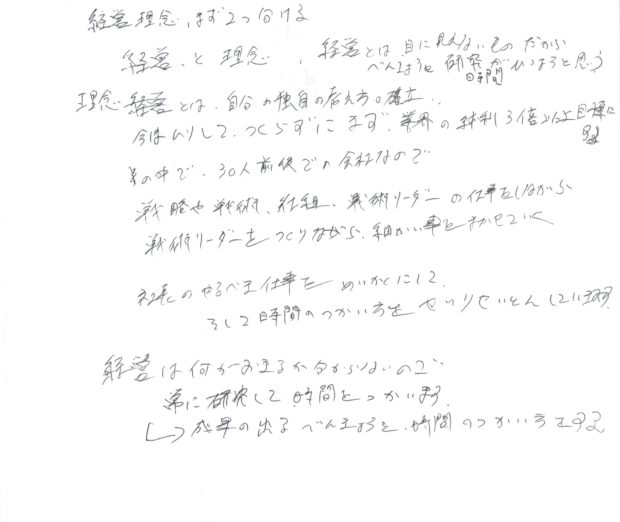 経営理念、まず2つ分ける
経営、と理念、経営とは目に見えないものだから
べんきょうと研究がひつようと思う
時間
理念経営とは、自分の独自の考え方の確立、
今はムリして、つくらずにまず、業界の純利3倍以上目標に
する
その中で、30人前後での会社なので
戦略や戦術、仕組、戦術リーダーの仕事をしながら
戦術リーダーをつくりながら、細かい事をまかせていく
社長のやるべき仕事をめいかくにして、
そして時間のつかい方をせいりせいとんしています
経営は何がおきるか分からないので
常に研究して時間をつかいます
↳成果の出るべんきょうと、時間のつかい方をする